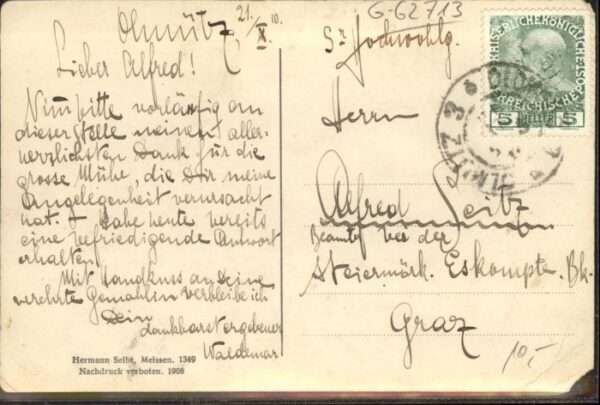 Olmütz, 21./X. 10.
Lieber Alfred!
Nimm bitte vorläufig an
dieser Stelle meinen aller-
herzlichsten Dank für die
grosse Mühe, die Dir meine
Angelegenheit verursacht
hat. Habe heute bereits
eine befriedigende Antwort
erhalten.
Mit Handkuss an Deine
verehrte Gemahlin verbleibe ich
Dein
dankbarst ergebener
Waldemar
Hermann Seibt, Meissen. 1349
Nachdruck verboten. 1908
G-62713
Sr Hochwohlg.
Herrn
Alfred Seitz
Beamter bei der
Steiermärk. Eskompte. Bk.
Graz
10,-
5 HELLER 5
OLMÜTZ 3